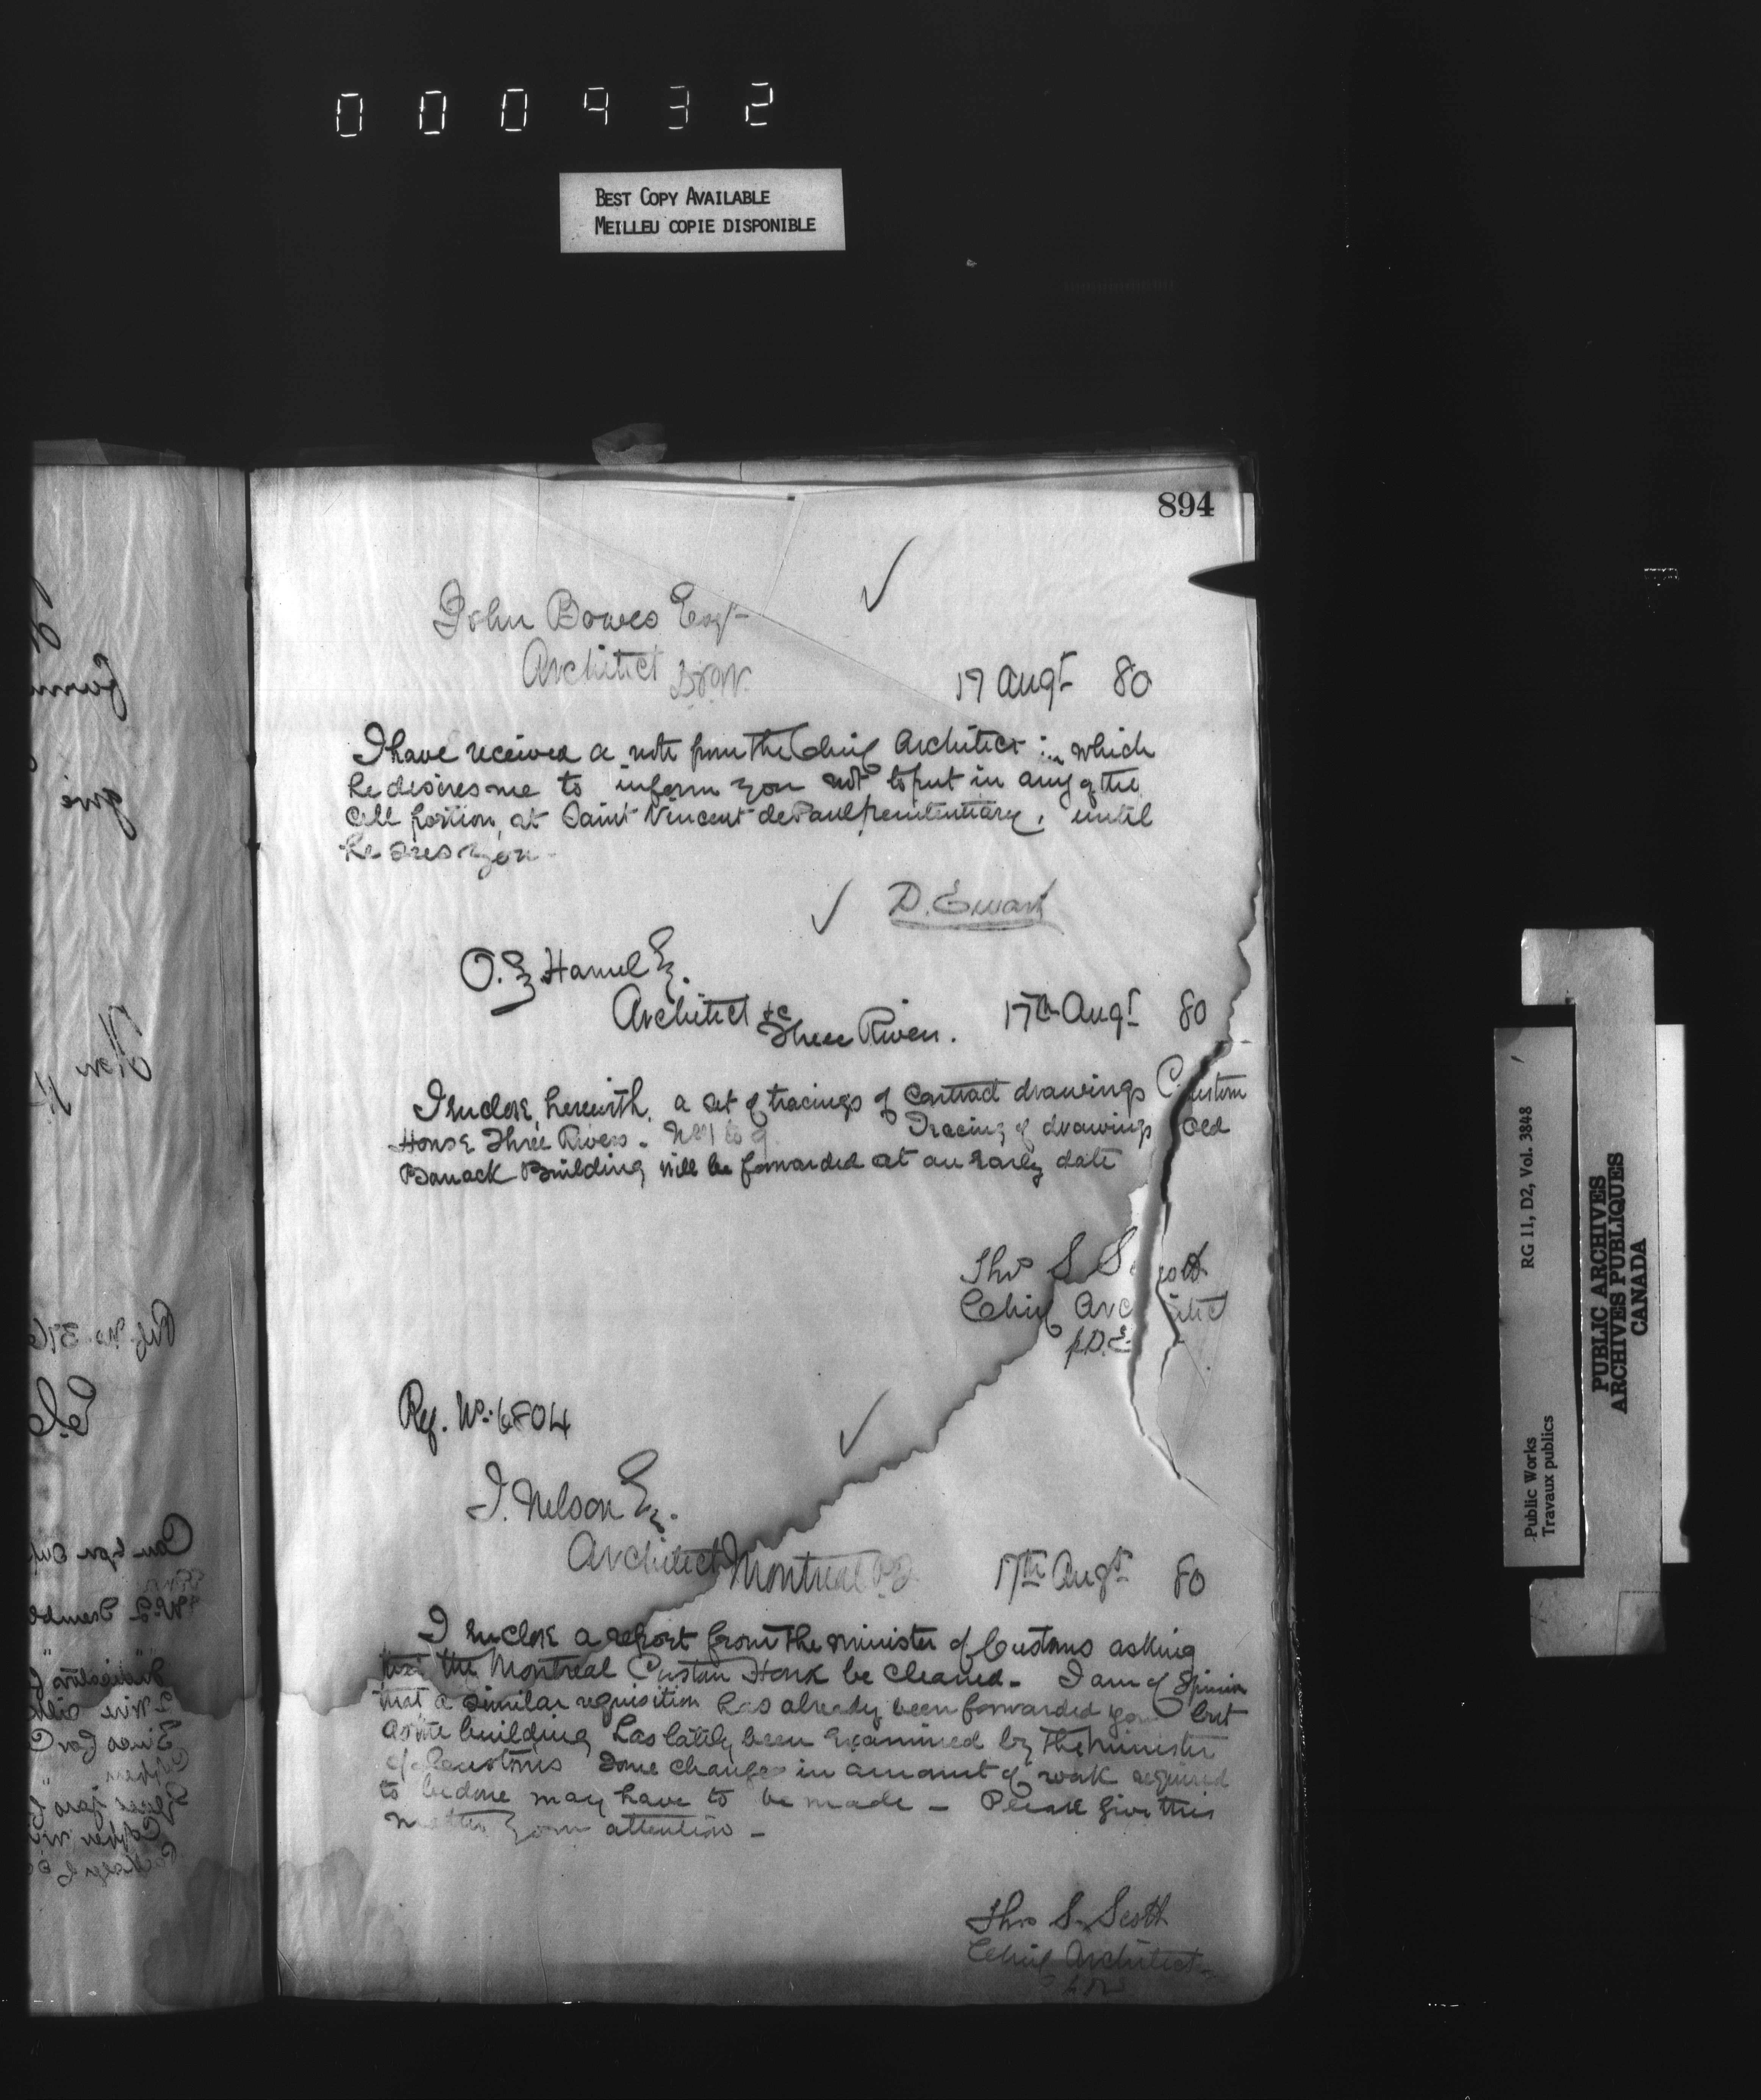 000932
BEST COPY AVAILABLE
MEILLEU COPIE DISPONIBLE
894
John Bowes Esqr
Architect D.P.W.
17 Augt 80
I have received a note from the Chief Architect in which
he desires me to inform you not to put in any of the
Cell portion, at Saint Vincent de Paul penitentiary, until
he sees you -
D. Ewart
O. Z. Hamel Eq.
Architect &c
Three Rivers. 17th Augt 80
I enclose, herewith, a set of tracings of Contract drawings Custom
House Three Rivers. No 1 to 9 Tracing of drawings Old
Barrack Building will be forwarded at an early date
Thos S Scott
Chief Architect
p D.E
Ref. No. 6804
J. Nelson Eq.
Architect Montreal P.Q. 17th Augt 80
I enclose a report from the Minister of Customs asking
that the Montreal Custom House be cleaned - I am of opinion
that a similar requisition has already been forwarded you but
as the building has lately been examined by the Minister
of Customs Some changes in amount of work required
to be done may have to be made - Please give this
matter your attention -
Thos S. Scott
Chief Architect
Public Works
Travaux publics
RG 11, D2, Vol. 3848
PUBLIC ARCHIVES
ARCHIVES PUBLIQUES
CANADA